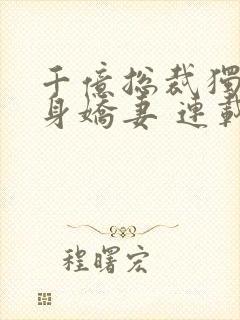 千億總裁獨
身嬌妻 連載
程曙宏